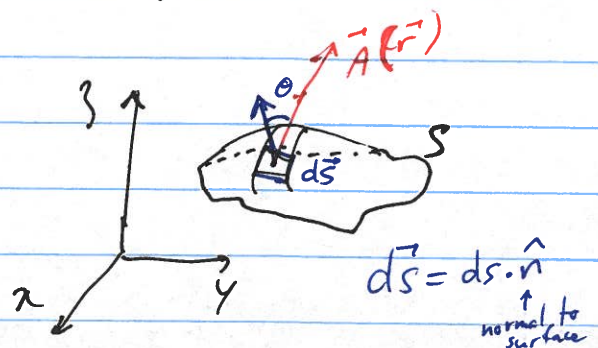 A⃗(r⃗)
θ
z
S
ds⃗
x
y
ds⃗ = ds·n̂
↑
normal to
surface